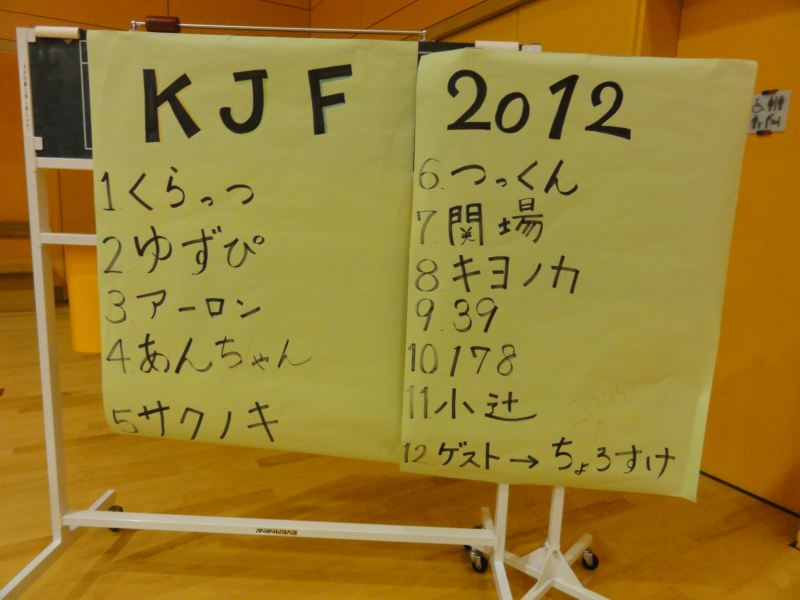 KJF 2012
1.くらっつ
2.ゆずぴ
3.アーロン
4.あんちゃん
5.サクノキ
6.つっくん
7.関場
8.キヨノカ
9.39
10.178
11.小辻
12.ゲスト→ちょろすけ
EVERNEW